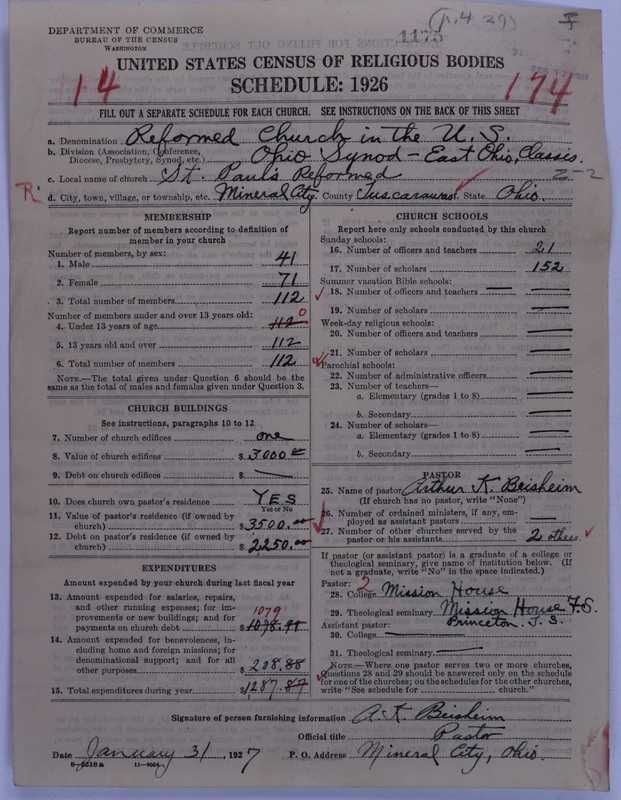 (p. 4 29)
1175
DEPARTMENT OF COMMERCE
BUREAU OF THE CENSUS
WASHINGTON
UNITED STATES CENSUS OF RELIGIOUS BODIES
14 SCHEDULE: 1926 174
FILL OUT A SEPARATE SCHEDULE FOR EACH CHURCH. SEE INSTRUCTIONS ON THE BACK OF THIS SHEET
a. Denomination Reformed Church in the U. S.
b. Division (Association, Conference, Diocese, Presbytery, Synod, etc.) Ohio Synod - East Ohio, Classis.
c. Local name of church St. Paul's Reformed 2-2
R d. City, town, village, or township, etc. Mineral City County Tuscarawas State Ohio.
MEMBERSHIP
Report number of members according to definition of
member in your church
Number of members, by sex:
1. Male 41
2. Female 71
3. Total number of members 112
Number of members under and over 13 years old:
4. Under 13 years of age 112 0
5. 13 years old and over 112
6. Total number of members 112
NOTE.—The total given under Question 6 should be the
same as the total of males and females given under Question 3.
CHURCH BUILDINGS
See instructions, paragraphs 10 to 12
7. Number of church edifices one
8. Value of church edifices $ 3000.00
9. Debt on church edifices $ —
10. Does church own pastor's residence YES
Yes or No
11. Value of pastor's residence (if owned by
church) $ 3500.00
12. Debt on pastor's residence (if owned by
church) $ 2250.00
EXPENDITURES
Amount expended by your church during last fiscal year
13. Amount expended for salaries, repairs,
and other running expenses; for im-
provements or new buildings; and for 1079
payments on church debt $ 1078.99
14. Amount expended for benevolences, in-
cluding home and foreign missions; for
denominational support; and for all
other purposes $ 208.88
15. Total expenditures during year $ 1287.87
CHURCH SCHOOLS
Report here only schools conducted by this church
Sunday schools:
16. Number of officers and teachers 21
17. Number of scholars 152
Summer vacation Bible schools:
18. Number of officers and teachers —
19. Number of scholars —
Week-day religious schools:
20. Number of officers and teachers —
21. Number of scholars —
Parochial schools:
22. Number of administrative officers —
23. Number of teachers—
a. Elementary (grades 1 to 8) —
b. Secondary —
24. Number of scholars—
a. Elementary (grades 1 to 8) —
b. Secondary —
PASTOR
25. Name of pastor Arthur K. Beisheim
(If church has no pastor, write "None")
26. Number of ordained ministers, if any, em-
ployed as assistant pastors —
27. Number of other churches served by the
pastor or his assistants 2 others.
If pastor (or assistant pastor) is a graduate of a college or
theological seminary, give name of institution below. (If
not a graduate, write "No" in the space indicated.)
Pastor: 2
28. College Mission House
29. Theological seminary Mission House T.S.
Assistant pastor: Princeton T. S.
30. College —
31. Theological seminary —
NOTE.—Where one pastor serves two or more churches,
Questions 28 and 29 should be answered only on the schedule
for one of the churches; on the schedules for the other churches,
write "See schedule for church."
Signature of person furnishing information A. K. Beisheim
Official title Pastor
Date January 31, 1927 P. O. Address Mineral City, Ohio.
8-5518a 11-9024